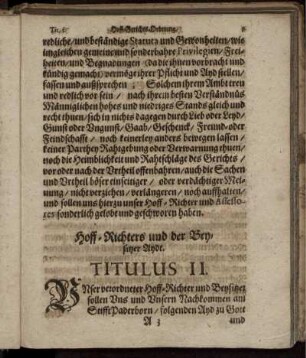 Hoff-Gerichts-Ordnung.
redliche/ und beständige Statuta und Gewonheiten/ wie
ingleichen gemeine und sonderbahre Privilegien/ Frei-
heiten/ und Begnadungen (da die ihnen vorbracht und
kündig gemacht) vermöge ihrer Pflicht und Ayd stellen/
fassen und außsprechen; Solchem ihrem Ambt treu
und redlich vor sein/ nach ihrem besten Verständnüs
Männiglichen hohes und niedriges Stands gleich und
recht thuen/ sich in nichts dagegen durch Lieb oder Leyd/
Gunst oder Ungunst/ Gaab/ Geschenck/ Freund- oder
Feindschafft/ noch keinerley anders bewegen lassen/
keiner Parthey Rahtgebung oder Verwarnung thuen/
noch die Heimblichkeit und Rahtschläge des Gerichts/
vor oder nach der Vrtheil offenbahren/ auch die Sachen
und Vrtheil böser einseiniger/ oder verdächtiger Mei-
nung/ nicht verziehen/ verlängeren/ noch auffhalten/
und sollen uns hierzu unser Hoff-Richter und Assesso-
res sonderlich gelobt und geschworen haben.
Hoff-Richters und der Bey-
sitzer Aydt.
TITULUS II.
UNser verordneter Hoff-Richter und Beysitzer
sollen Uns und Unsern Nachkommen am
Stifft Paderborn/ folgenden Ayd zu Gott
A 3 und